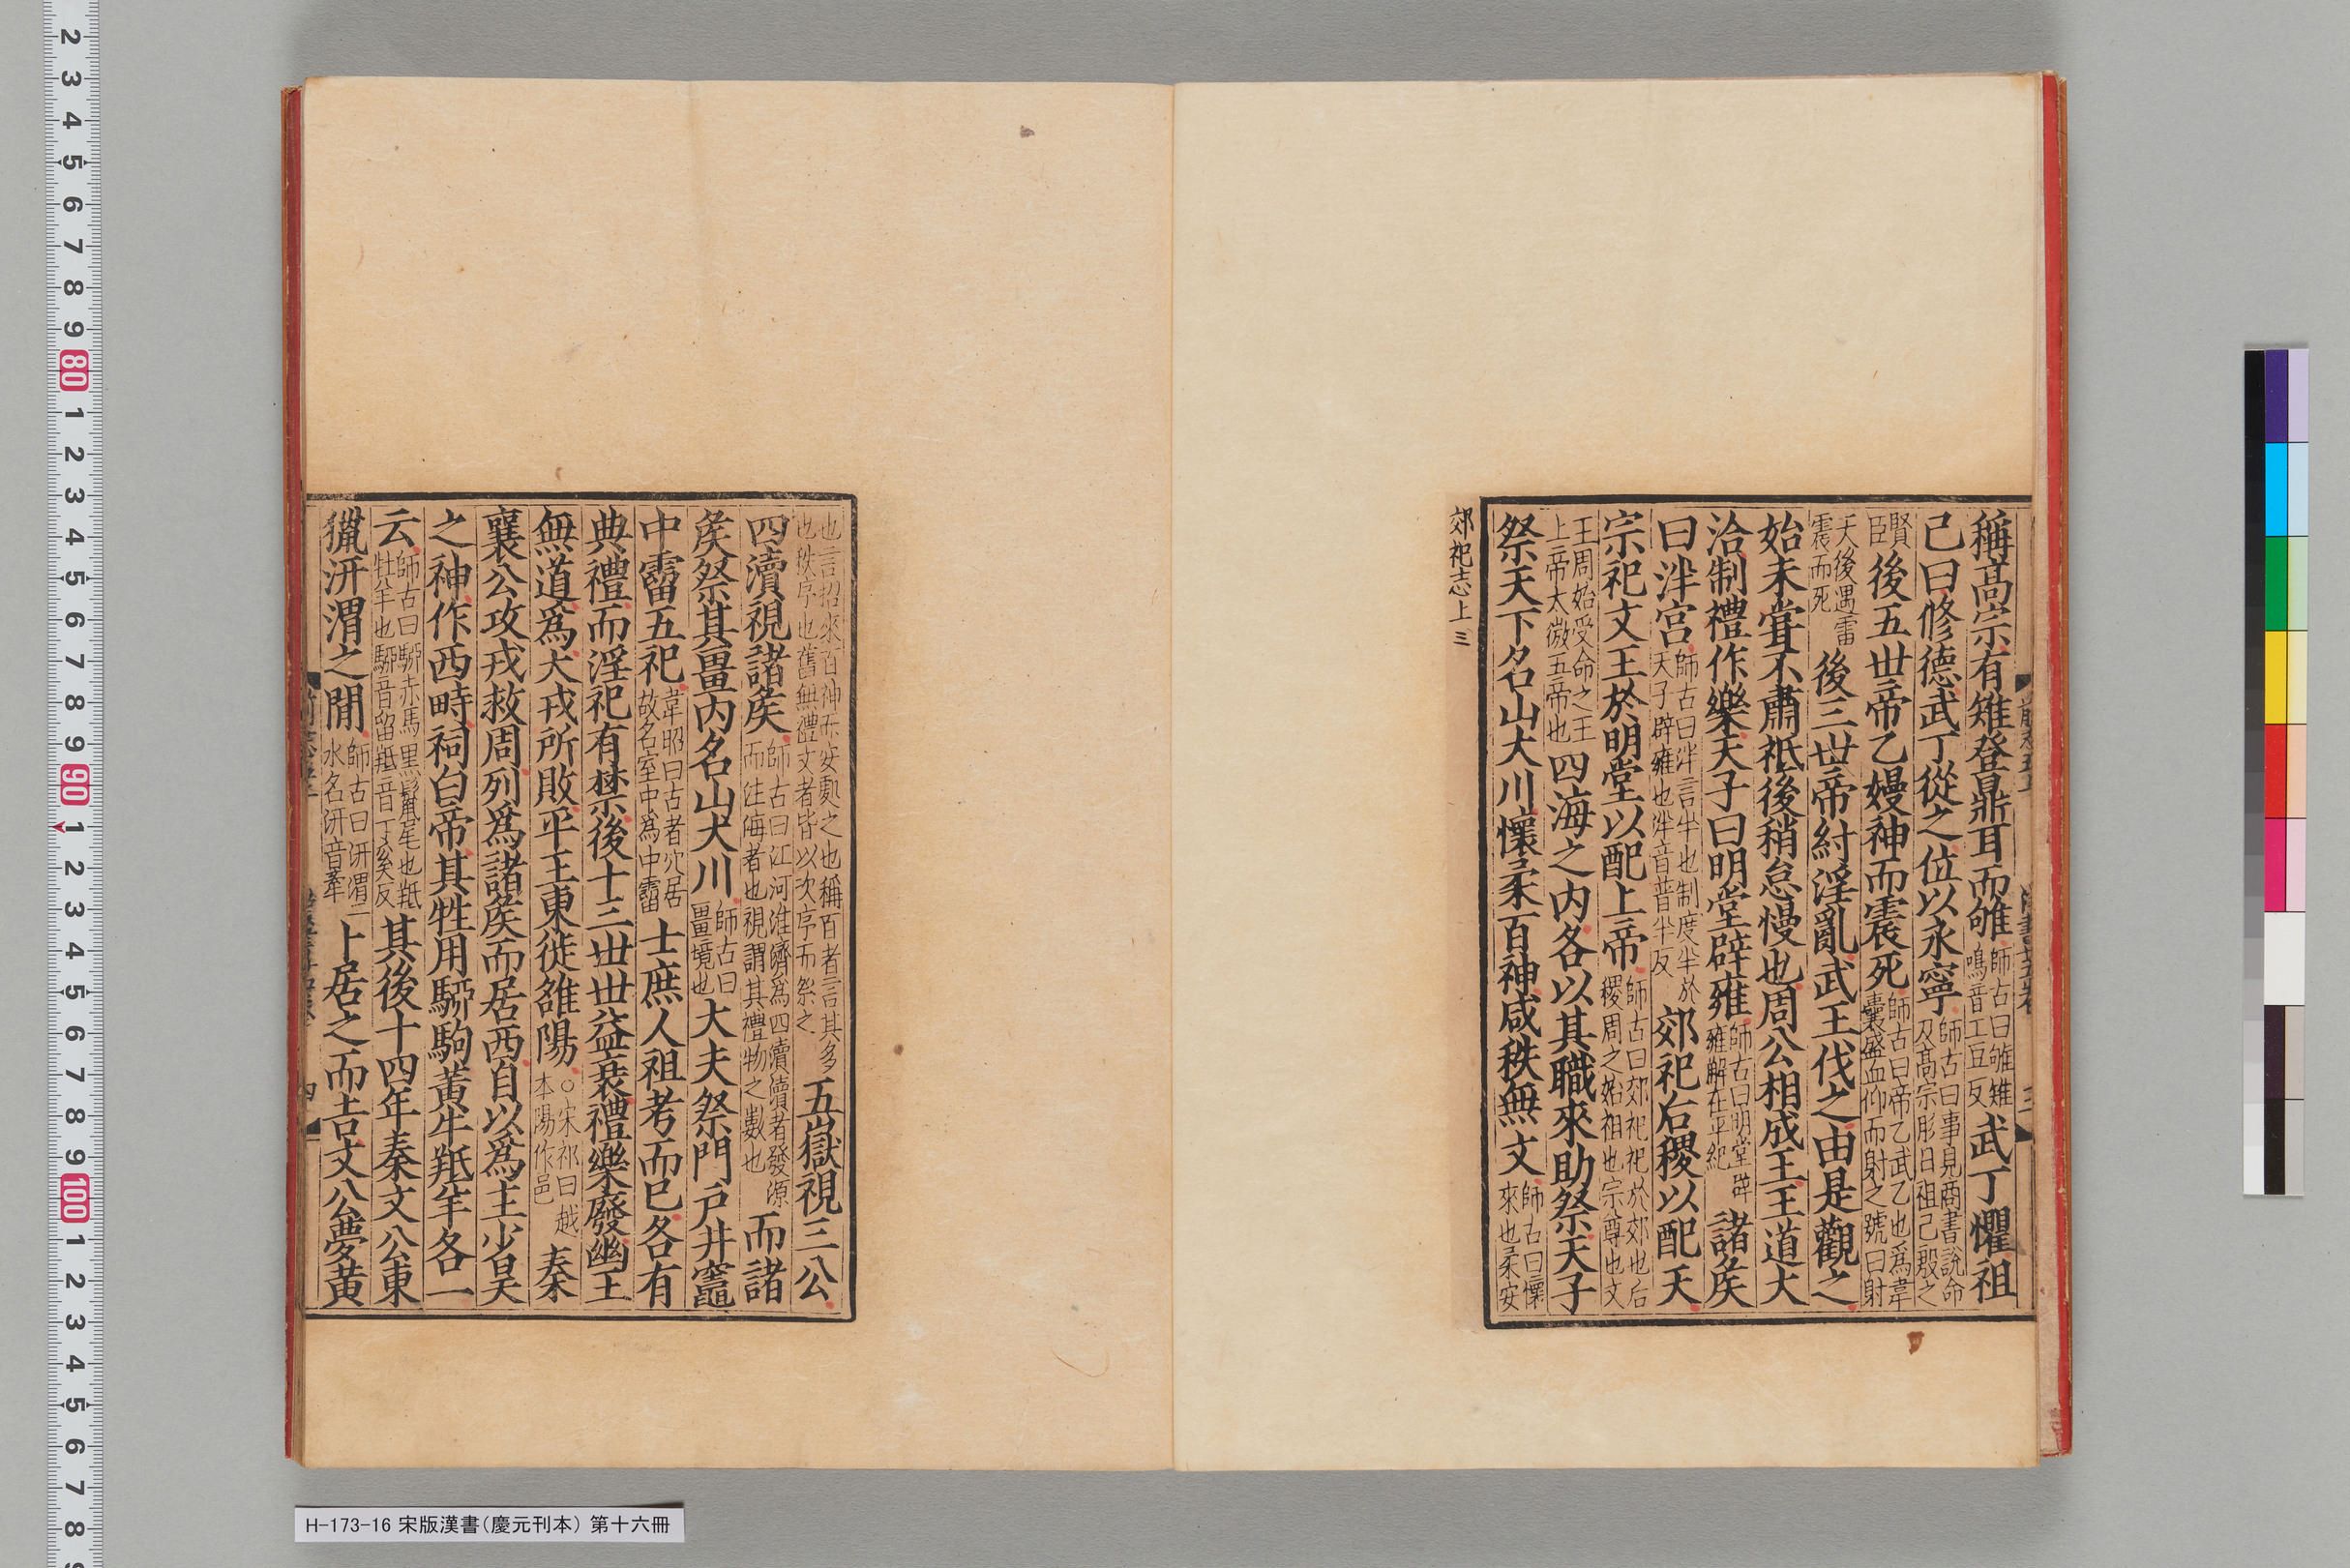 稱高宗有雉登鼎耳而雊師古曰雊雉鳴音工豆反武丁懼祖
己曰修德武丁從之位以永寧師古曰事見商書說命及高宗肜日祖己殷之
賢臣後五世帝乙嫚神而震死師古曰帝乙武乙也爲韋囊盛血仰而射之號曰射
天後遇雷震而死後三世帝紂淫亂武王伐之由是觀之
始未嘗不肅祗後稍怠慢也周公相成王王道大
洽制禮作樂天子曰明堂辟雍師古曰明堂辟雍解在平紀諸矦
曰泮宮師古曰泮言半也制度半於天子辟雍也泮音普半反郊祀后稷以配天
宗祀文王於明堂以配上帝師古曰郊祀祀於郊也后稷周之始祖也宗尊也文
王周始受命之王上帝太微五帝也四海之内各以其職來助祭天子
祭天下名山大川懷柔百神咸秩無文師古曰懷來也柔安
郊祀志上 三
也言招來百神而安䖏之也稱百者言其多也秩序也舊無禮文者皆以次序而祭之五嶽視三公
四瀆視諸矦師古曰江河淮濟爲四瀆瀆者發源而注海者也視謂其禮物之數也而諸
矦祭其畺内名山大川師古曰畺境也大夫祭門戶井竈
中霤五祀韋昭曰古者穴居故名室中爲中霤士庶人祖考而已各有
典禮而淫祀有禁後十三世世益衰禮樂廢幽王
無道爲犬戎所敗平王東徙雒陽○宋祁曰越本陽作邑秦
襄公攻戎救周列爲諸矦而居西自以爲主少昊
之神作西畤祠白帝其牲用駵駒黃牛羝羊各一
云師古曰駵赤馬黑鬣尾也羝牡羊也駵音留羝音丁奚反其後十四年秦文公東
獵汧渭之閒師古曰汧渭二水名汧音牽卜居之而吉文公夢黃
四
H-173-16 宋版漢書（慶元刊本） 第十六冊
2 3 4 5 6 7 8 9 80 1 2 3 4 5 6 7 8 9 90 1 2 3 4 5 6 7 8 9 100 1 2 3 4 5 6 7 8